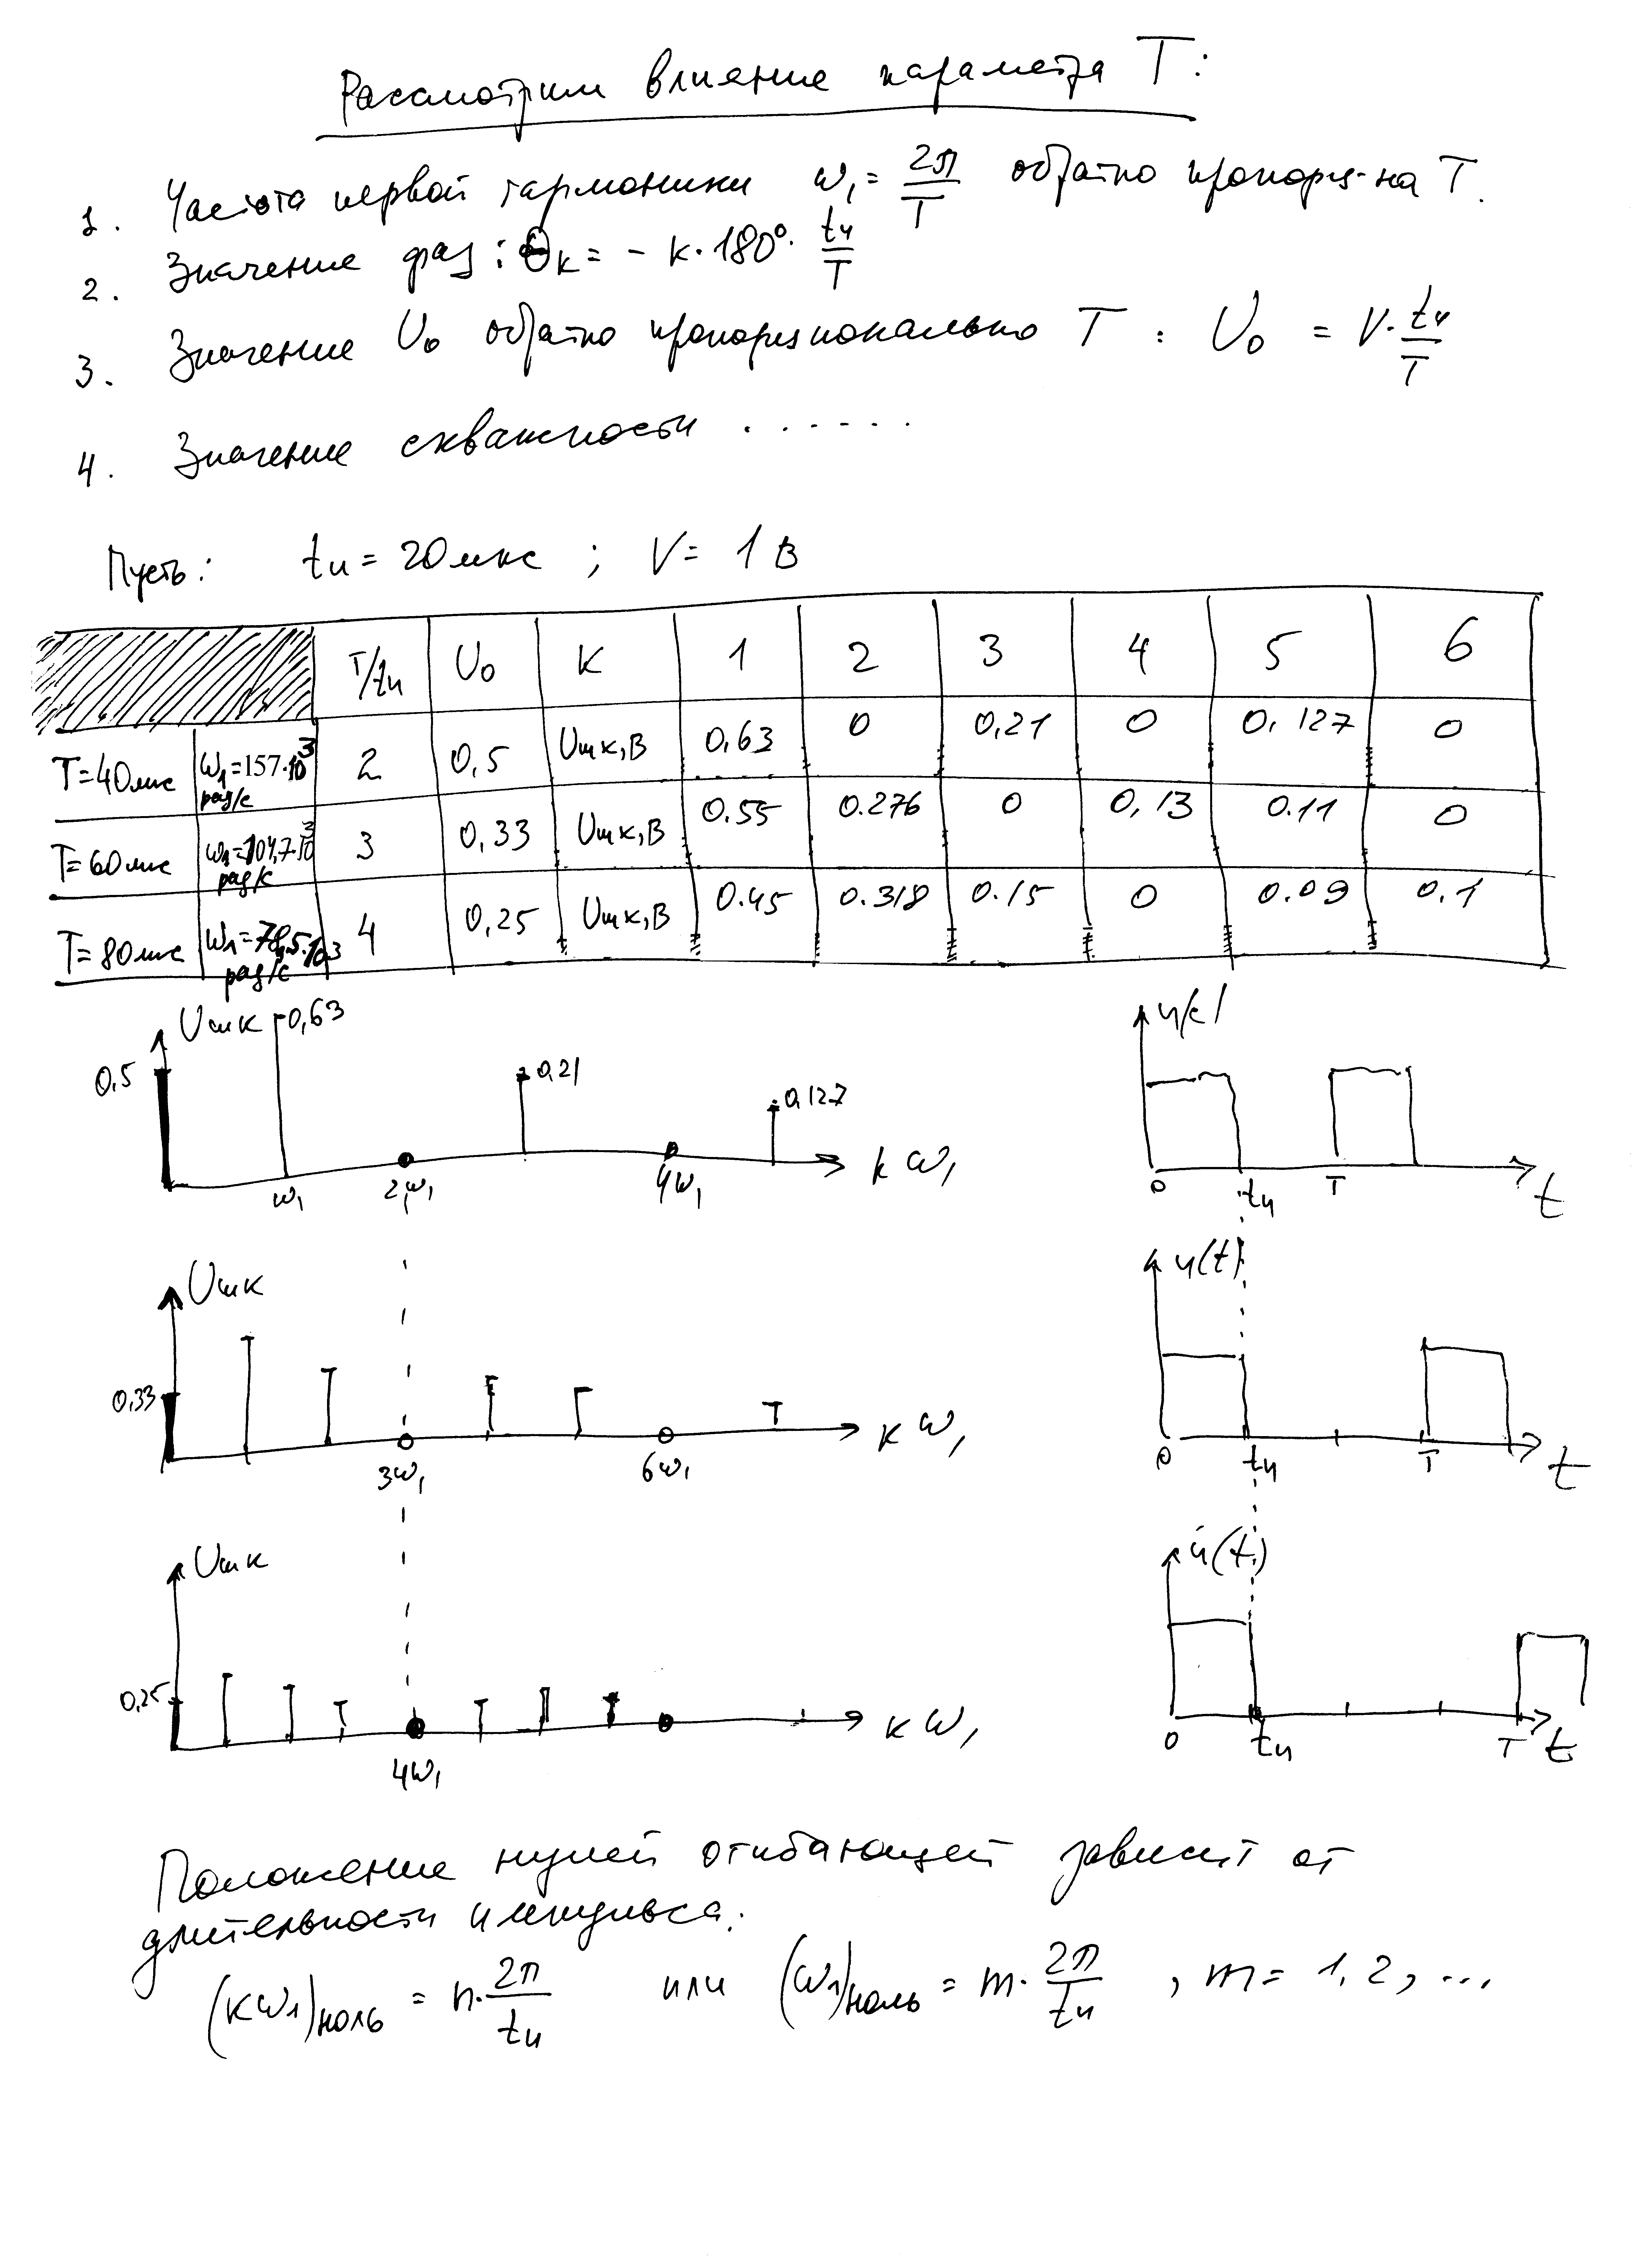 Рассмотрим влияние параметра T:
1. Частота первой гармоники ω₁ = 2π/T обратно пропорц-на T.
2. Значение фаз: Θк = - к·180°· tи/T
3. Значение U₀ обратно пропорционально T : U₀ = V· tи/T
4. Значение скважности . . . . . .
Пусть: tи = 20 мкс ; V = 1 В
T/tи U₀ К 1 2 3 4 5 6
T=40мкс ω₁=157·10³ рад/с 2 0,5 Umк,В 0,63 0 0,21 0 0,127 0
T=60мкс ω₁=104,7·10³ рад/с 3 0,33 Umк,В 0.55 0.276 0 0,13 0.11 0
T=80мкс ω₁=78,5·10³ рад/с 4 0,25 Umк,В 0.45 0.318 0.15 0 0.09 0.1
Umк 0,63
0,5 0,21 0,127
ω₁ 2ω₁ 4ω₁ кω₁
u(t)
0 tи T t
Umк
0,33
3ω₁ 6ω₁ кω₁
u(t)
0 tи T t
Umк
0,25
4ω₁ кω₁
u(t)
0 tи T t
Положение нулей огибающей зависит от
длительности импульса:
(кω₁)ноль = n· 2π/tи или (ω₁)ноль = m· 2π/tи , m = 1, 2, ...